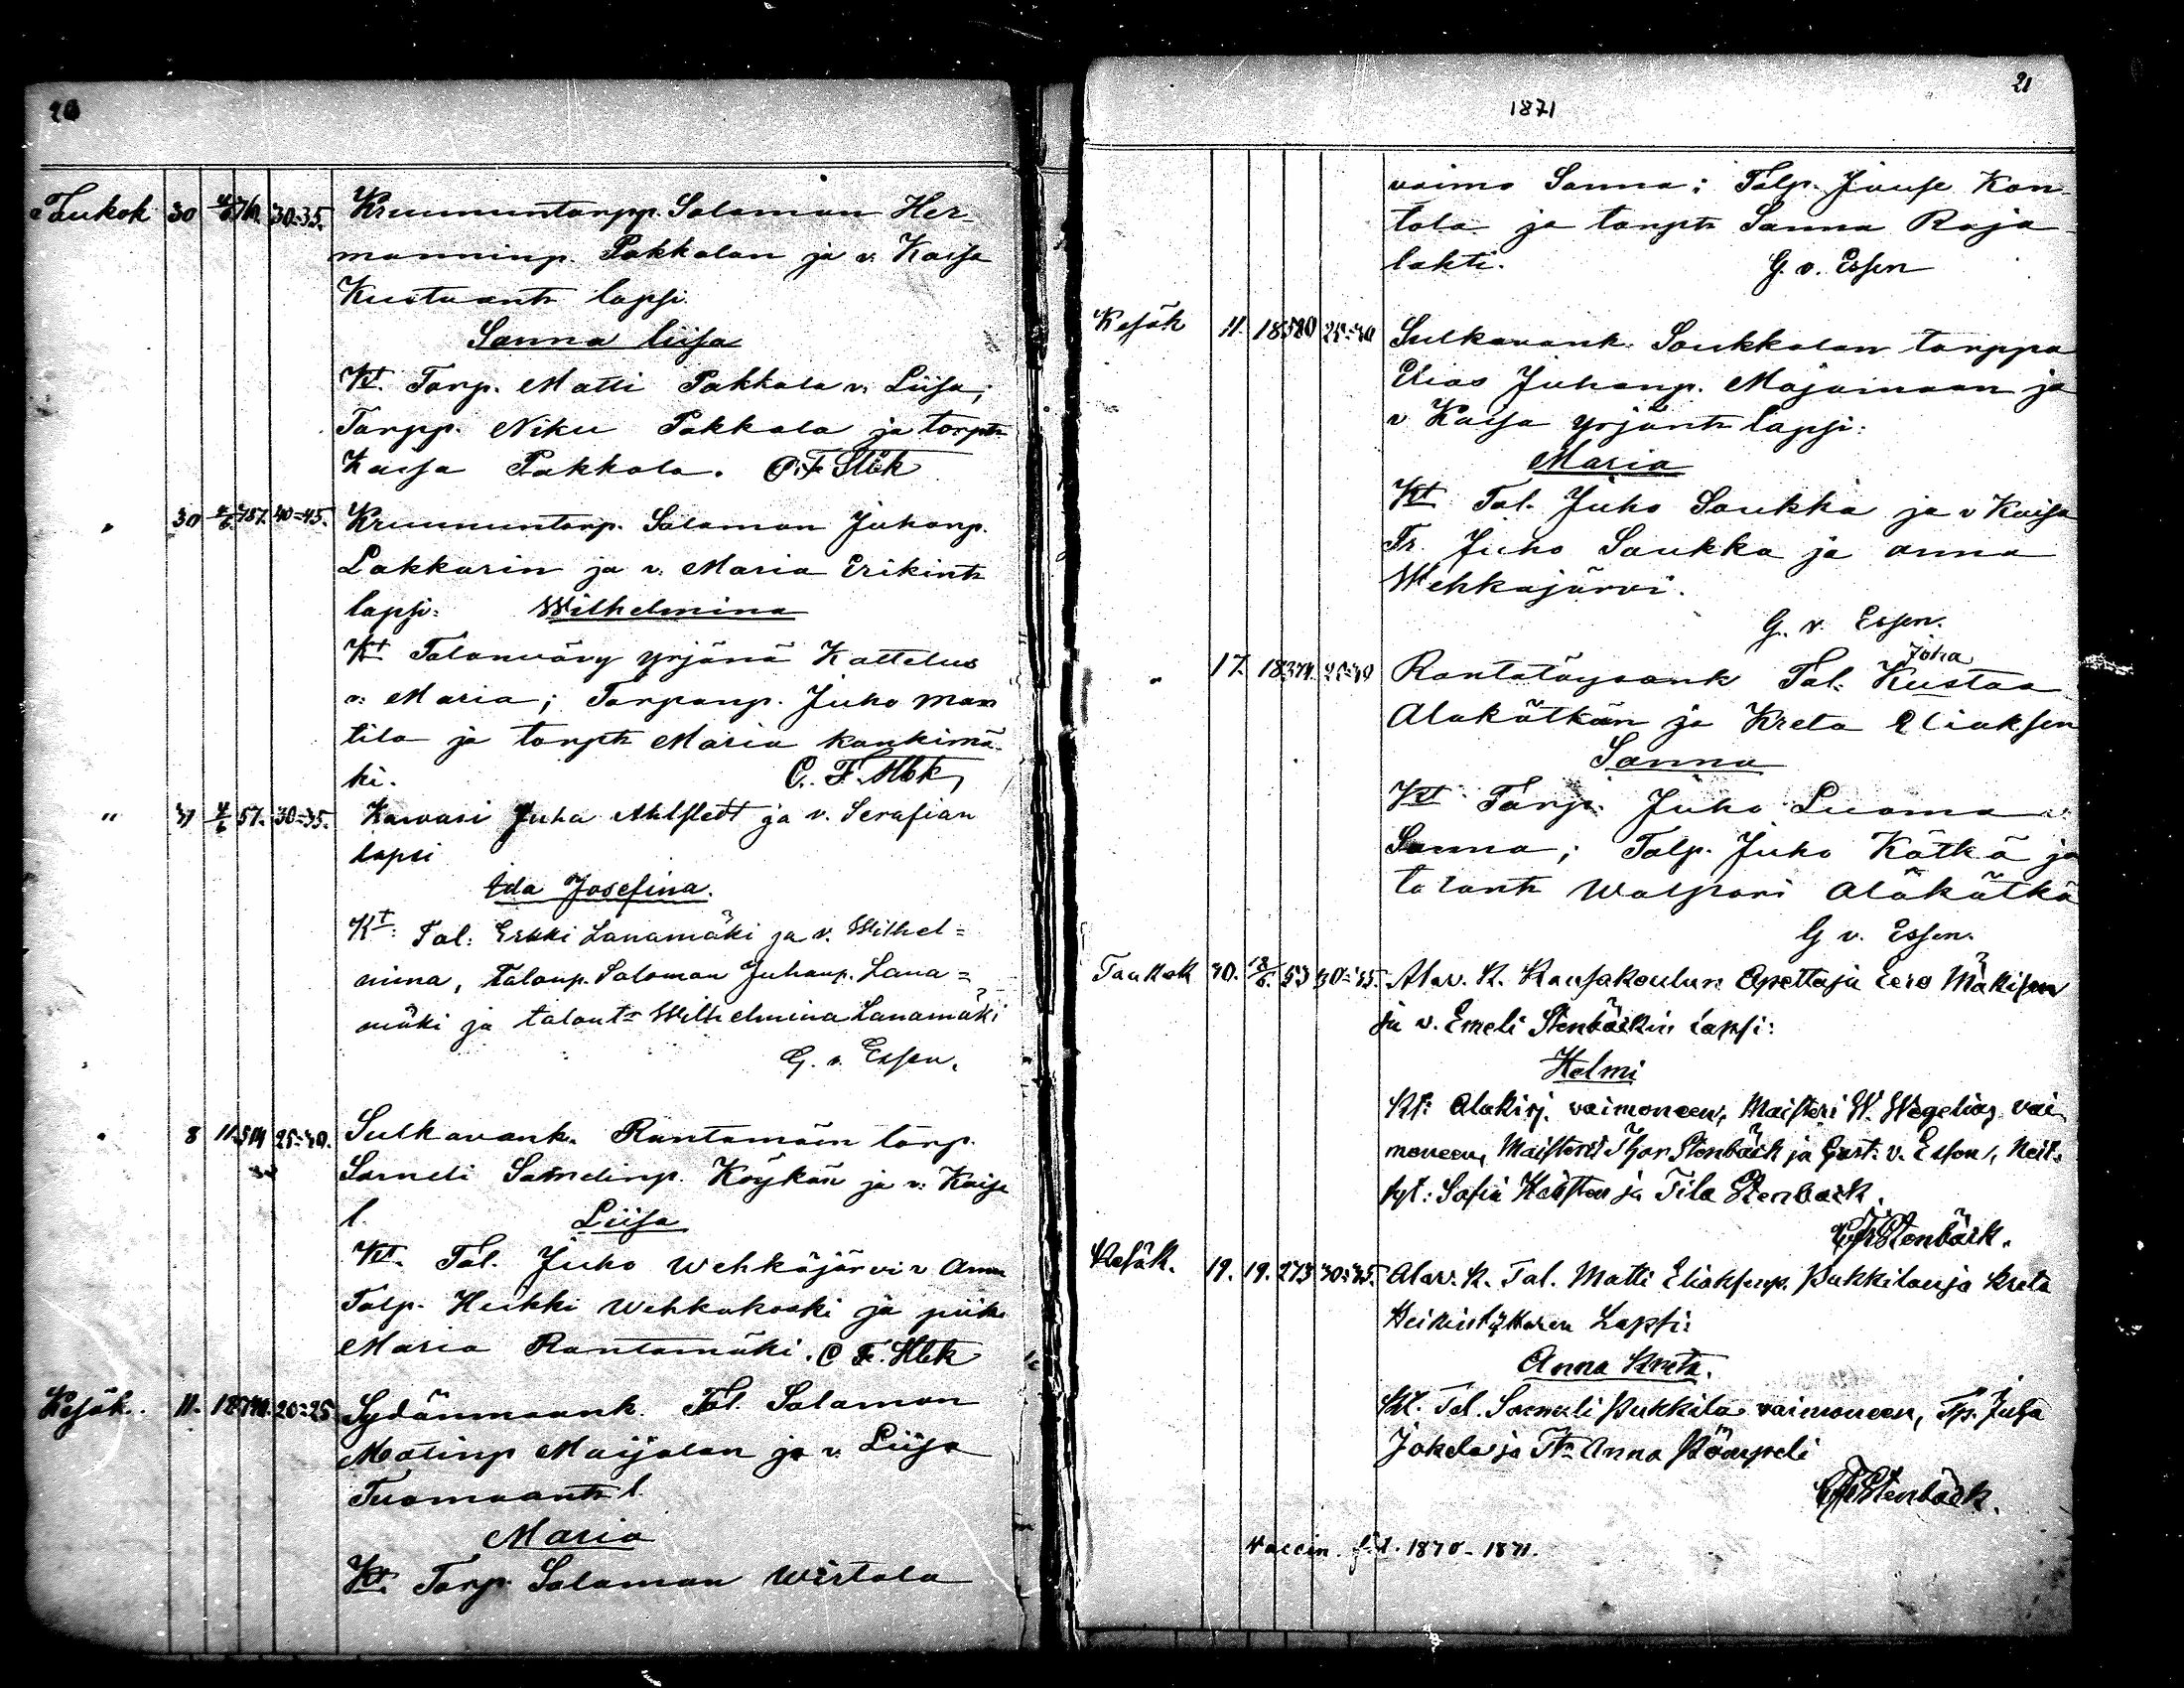 20
Toukok 30 4/6 761. 30-35. Kruununtorpp. Salomon Her-
manninp. Pakkalan ja v. Kaisa
Kustaantr lapsi.
Sanna Liisa
Kt. Torp. Matti Pakkala v. Liisa;
Torpp. Niku Pakkala ja torptr
Kaisa Pakkala. C. F. Stbk
" 30 4/6 757. 40-45. Kruununtorp. Salomon Juhanp.
Lakkarin ja v. Maria Erikintr
lapsi: Wilhelmina
Kt Talonvävy Yrjänä Kattelus
v. Maria; Torpanp. Juho Man
tila ja torptr Maria Kankimä-
ki. C. F. Stbk
" 31 4/6 57. 30-35. Karvari Juha Ahlstedt ja v. Serafian
lapsi
Ida Josefina.
Kt: Tal: Erkki Lanamäki ja v. Wilhel=
mina, Talonp. Salomon Juhanp. Lana=
mäki ja talontr Wilhelmina Lanamäki
G. v. Essen.
" 8 11. 514 25-30. Sulkavank. Rantamäen torp.
Sameli Samelinp. Köykän ja v. Kaisa
l. Liisa
Kt. Tal. Juho Wehkajärvi v Anna
Talp. Heikki Wehkakoski ja piika
Maria Rantamäki. C. F. Stbk
Kesäk. 11. 18 20-25 Sydänmaank. Tal. Salamon
Matinp Maijalan ja v. Liisa
Tuomaantr l.
Maria
Kt. Torp. Salamon Wirtala
1871
21
vaimo Sanna; Talp. Juuse Kon-
tola ja torptr Sanna Raja-
lahti. G. v. Essen
Kesäk 11. 18 580 25-30 Sulkavank. Soukkalan torppa
Elias Juhanp. Majamaan ja
v Kaisa Yrjäntr lapsi:
Maria
Kt Tal. Juho Soukka ja v Kaisa
Tr. Juho Saukka ja Anna
Wehkajärvi.
G. v. Essen.
Juha
" 17. 18 374. 25-30 Rantatöysänk Tal. Kustaa
Alakätkän ja Kreta Eliaksen
Sanna
Kt Torp. Juho Luoma v.
Sanna; Talp. Juho Kätkä ja
talontr Walpori Alakätkä
G v. Essen.
Toukok 30. 18/6. 53 30-35. Alav. K. Kansakoulun Opettaja Eero Mäkisen
ja v. Emeli Stenbäckin lapsi:
Helmi
Kt: Alakirj. vaimoneen, Maisteri W. Wegelius vai-
moneen, Maisterit Thor Stenbäck ja Gust. v. Essen, Neit-
syt: Sofia Hällsten ja Tila Stenbäck.
C F Stenbäck.
Kesäk. 19. 19. 273 30-35. Alav. K. Tal. Matti Eliaksenp. Pukkilan ja Kreta
Heikintyttären Lapsi:
Anna Kreta.
Kt. Tal. Sameli Pukkila vaimoneen, Tp. Juha
Jokela ja Ttr Anna Kömpeli
C F Stenbäck.
Vaccin. f.l. 1870-1871.